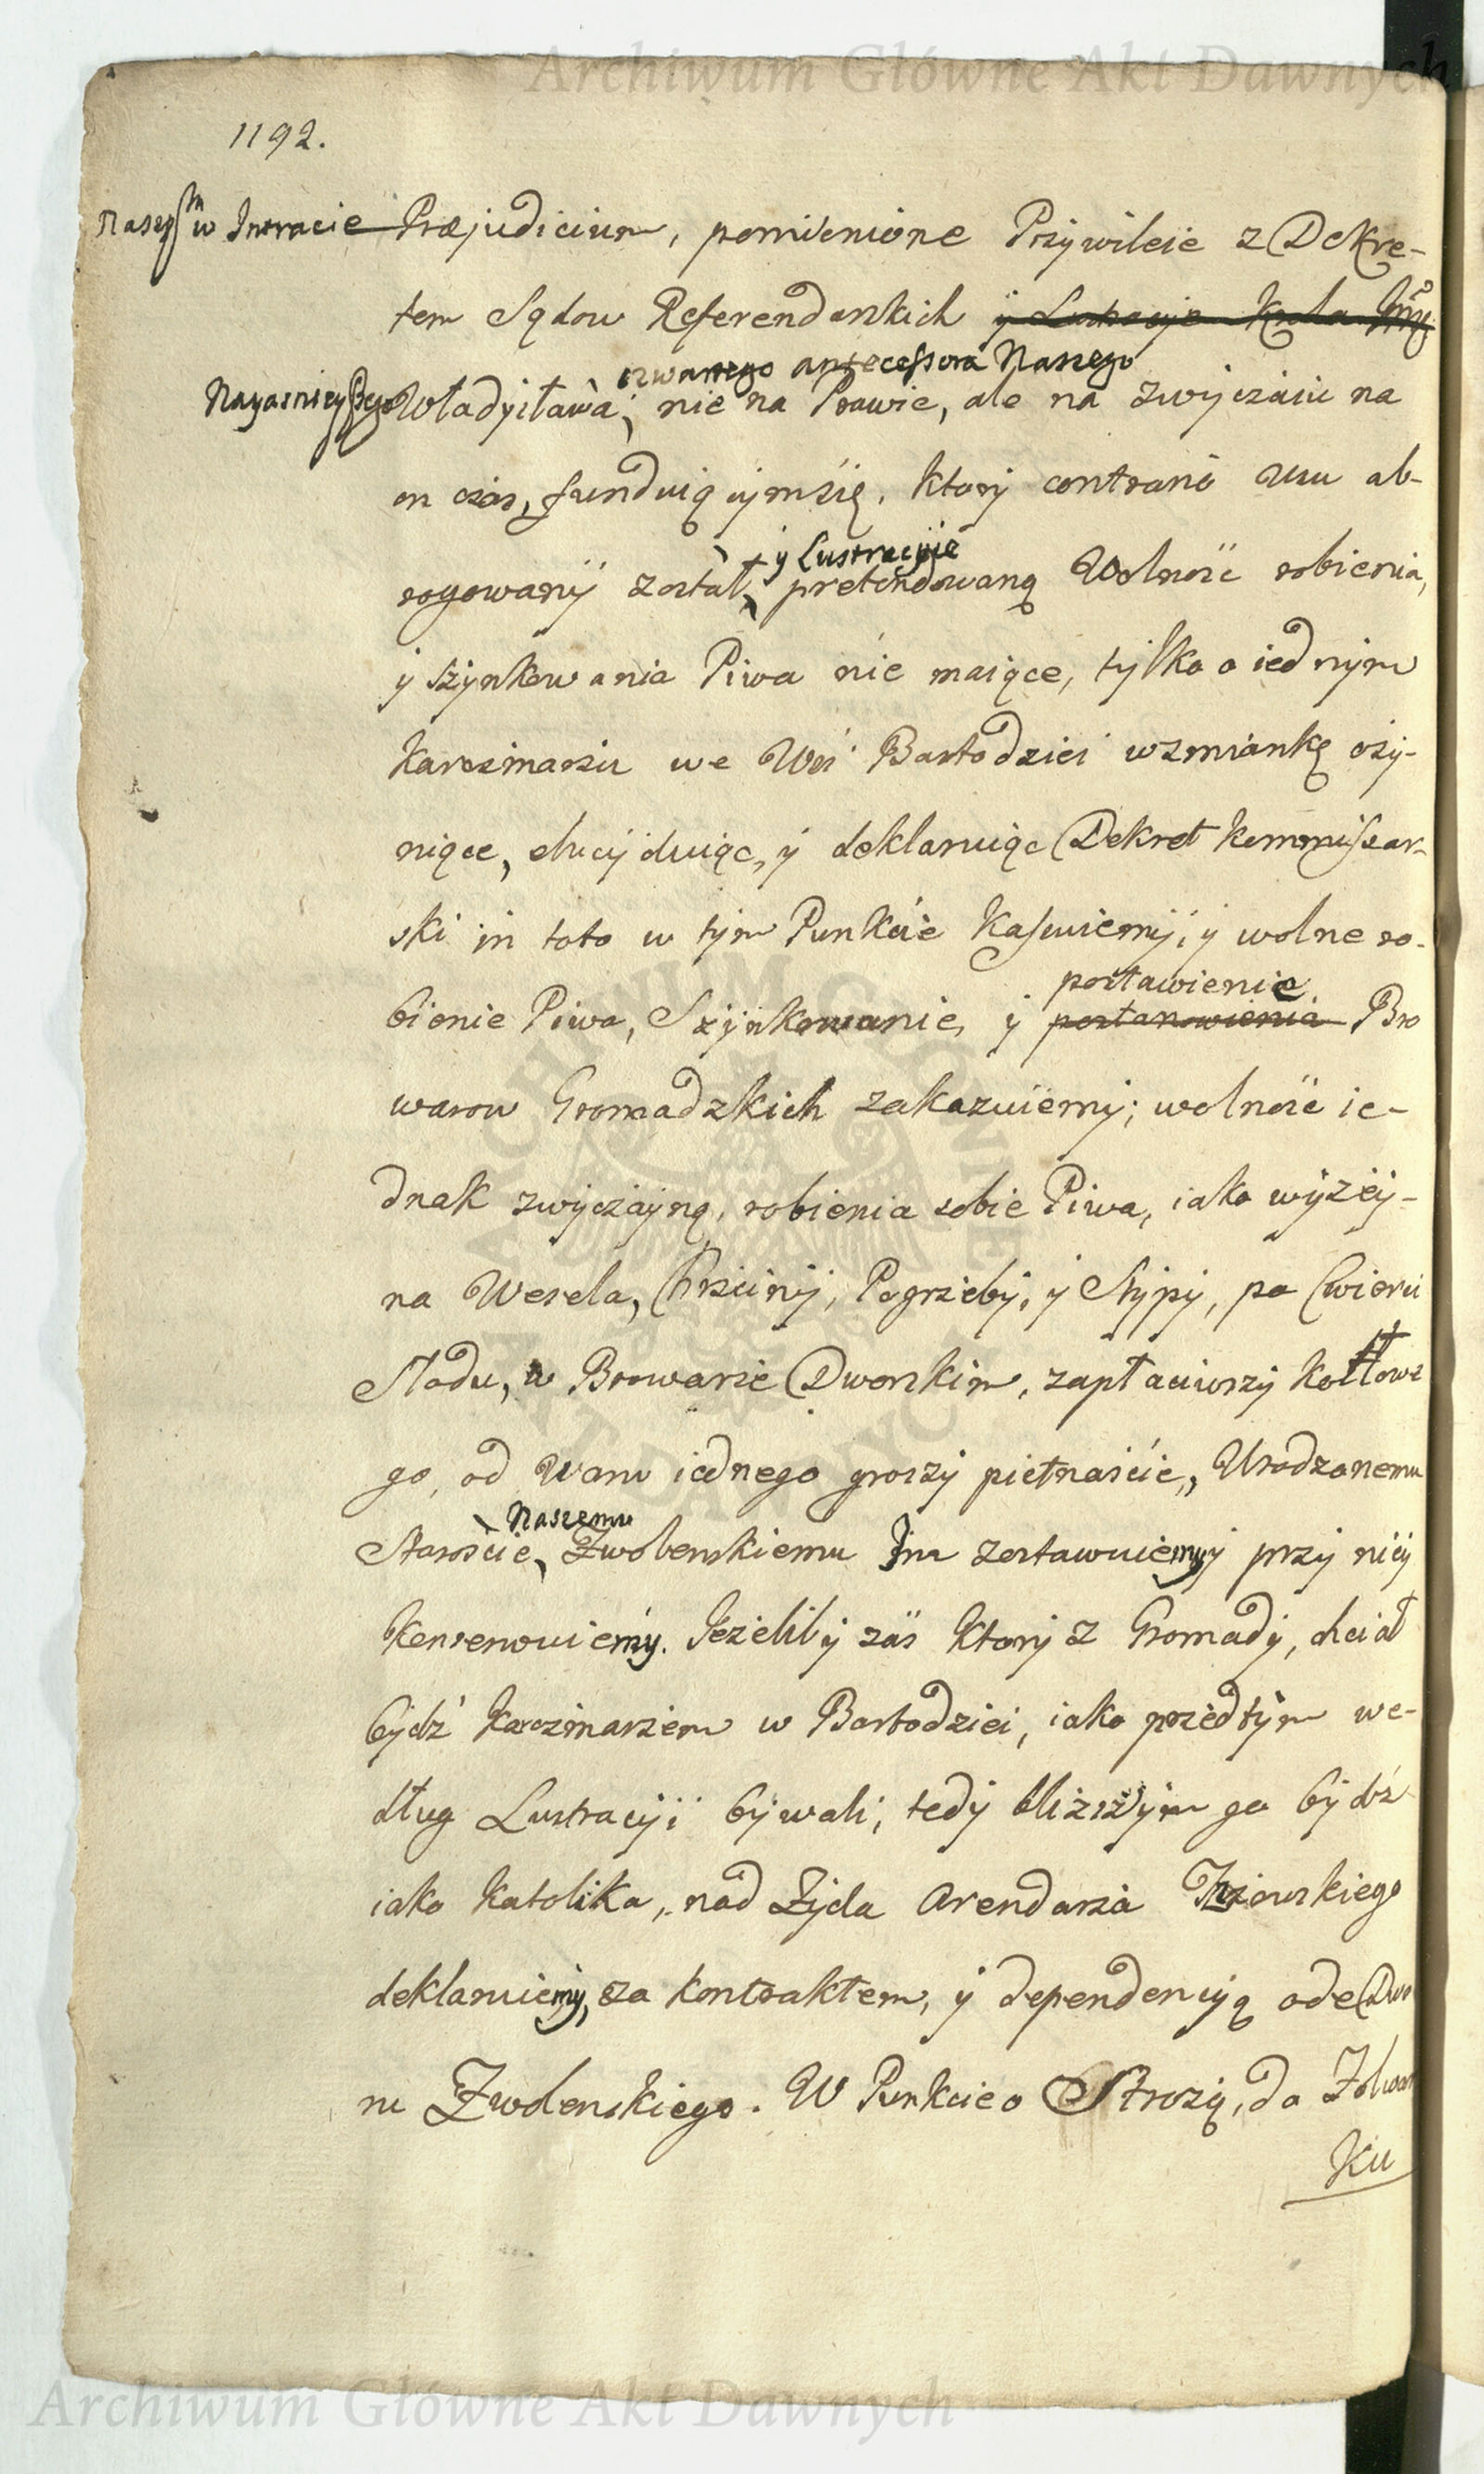 Archiwum Główne Akt Dawnych
1192.
Naszym w Intracie Præjudicium, pomienione Przywileie z Dekre-
tem Sądow Referendarskich y Lustracye Krola
czwartego antecessora Naszego
Nayasnieyszego Władysława, nie na Prawie, ale na zwyczaiu na
on czas, funduiącymsię, ktory contrario usu ab-
y Lustracyie
rogowany został, pretendowaną Wolność robienia,
y szynkowania Piwa nie maiące, tylko o iednym
Karczmarzu we Wsi Bartodziei wzmiankę czy-
niące, elucyduiąc, y deklaruiąc Dekret Kommissar-
ski in toto w tym Punkcie Kassuiemy, y wolne ro-
postawienie
bienie Piwa, Szynkowanie, y postanowienia Bro
warow Gromadzkich zakazuiemy; wolność ie-
dnak zwyczayną, robienia sobie Piwa, iako wyżey-
na Wesela, Chrzciny, Pogrzeby, y Stypy, po Cwierci
Słodu, w Browarze Dworskim, zapłaciwszy Kotłowe
go, od Waru iednego groszy pietnaście, Urodzonemu
Naszemu
Staroscie, Zwolenskiemu zostawuiemy y przy niey
Konserwuiemy. Jeżeliby zaś ktory z Gromady, chciał
bydź Karczmarzem w Bartodziei, iako przedtym we-
dług Lustracyi bywali, tedy bliższym go bydź
iako Katolika, nad Żyda Arendarza
deklaruiemy, za kontraktem, y dependencyą ode Dwo
ru Zwolenskiego. W Punkcie o Strozą, do Folwar
Ku
Archiwum Główne Akt Dawnych